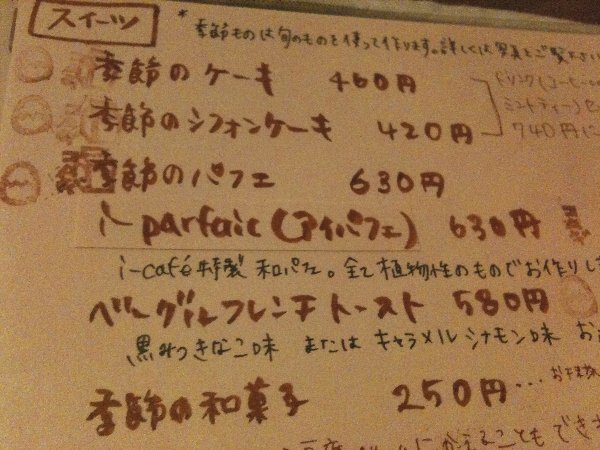 スイーツ
*季節ものは旬のものを使って作ります。詳しくは写真をご覧下さい
季節のケーキ 460円
季節のシフォンケーキ 420円
740円に
季節のパフェ 630円
i-parfait(アイパフェ) 630円
i-café特製 和パフェ。全て植物性のものでお作りし
ベーグルフレンチトースト 580円
黒みつきなこ味 または キャラメルシナモン味 お
季節の和菓子 250円...
にかえることもでき